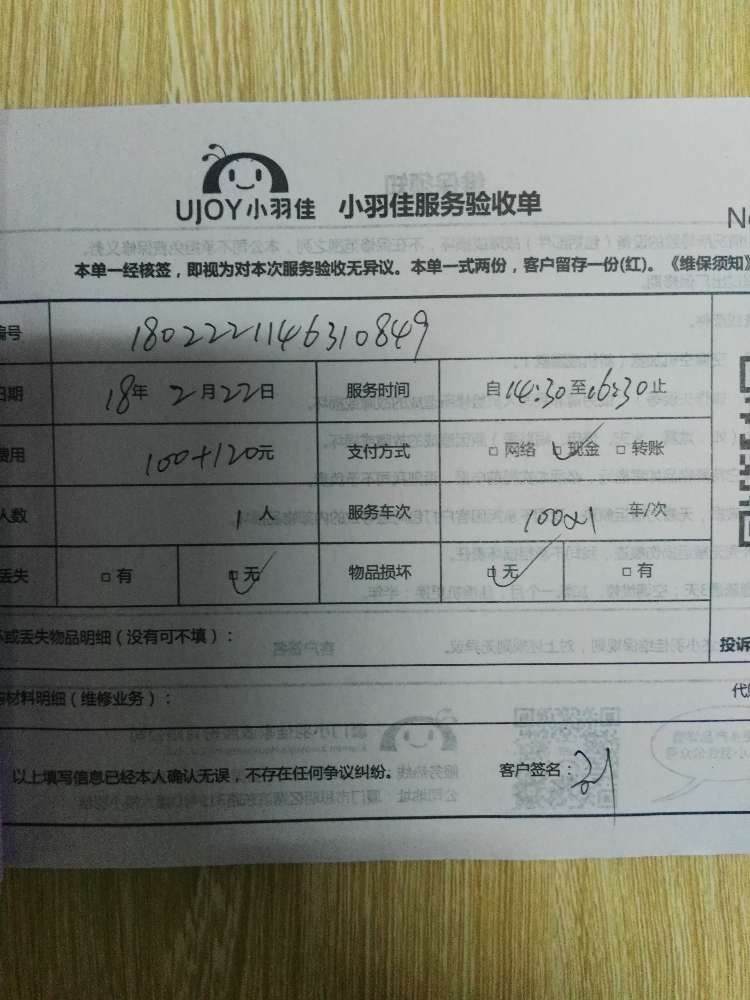 UJOY小羽佳 小羽佳服务验收单
N
本单一经核签，即视为对本次服务验收无异议。本单一式两份，客户留存一份(红)。《维保须知》
编号 1802221146310849
日期 18年 2月22日 服务时间 自14:30至16:30止
费用 100+120元 支付方式 □ 网络 □ 现金 □ 转账
人数 1人 服务车次 100×1 车/次
丢失 □ 有 □ 无 物品损坏 □ 无 □ 有
或丢失物品明细（没有可不填）：
投诉
材料明细（维修业务）：
代
以上填写信息已经本人确认无误，不存在任何争议纠纷。 客户签名：